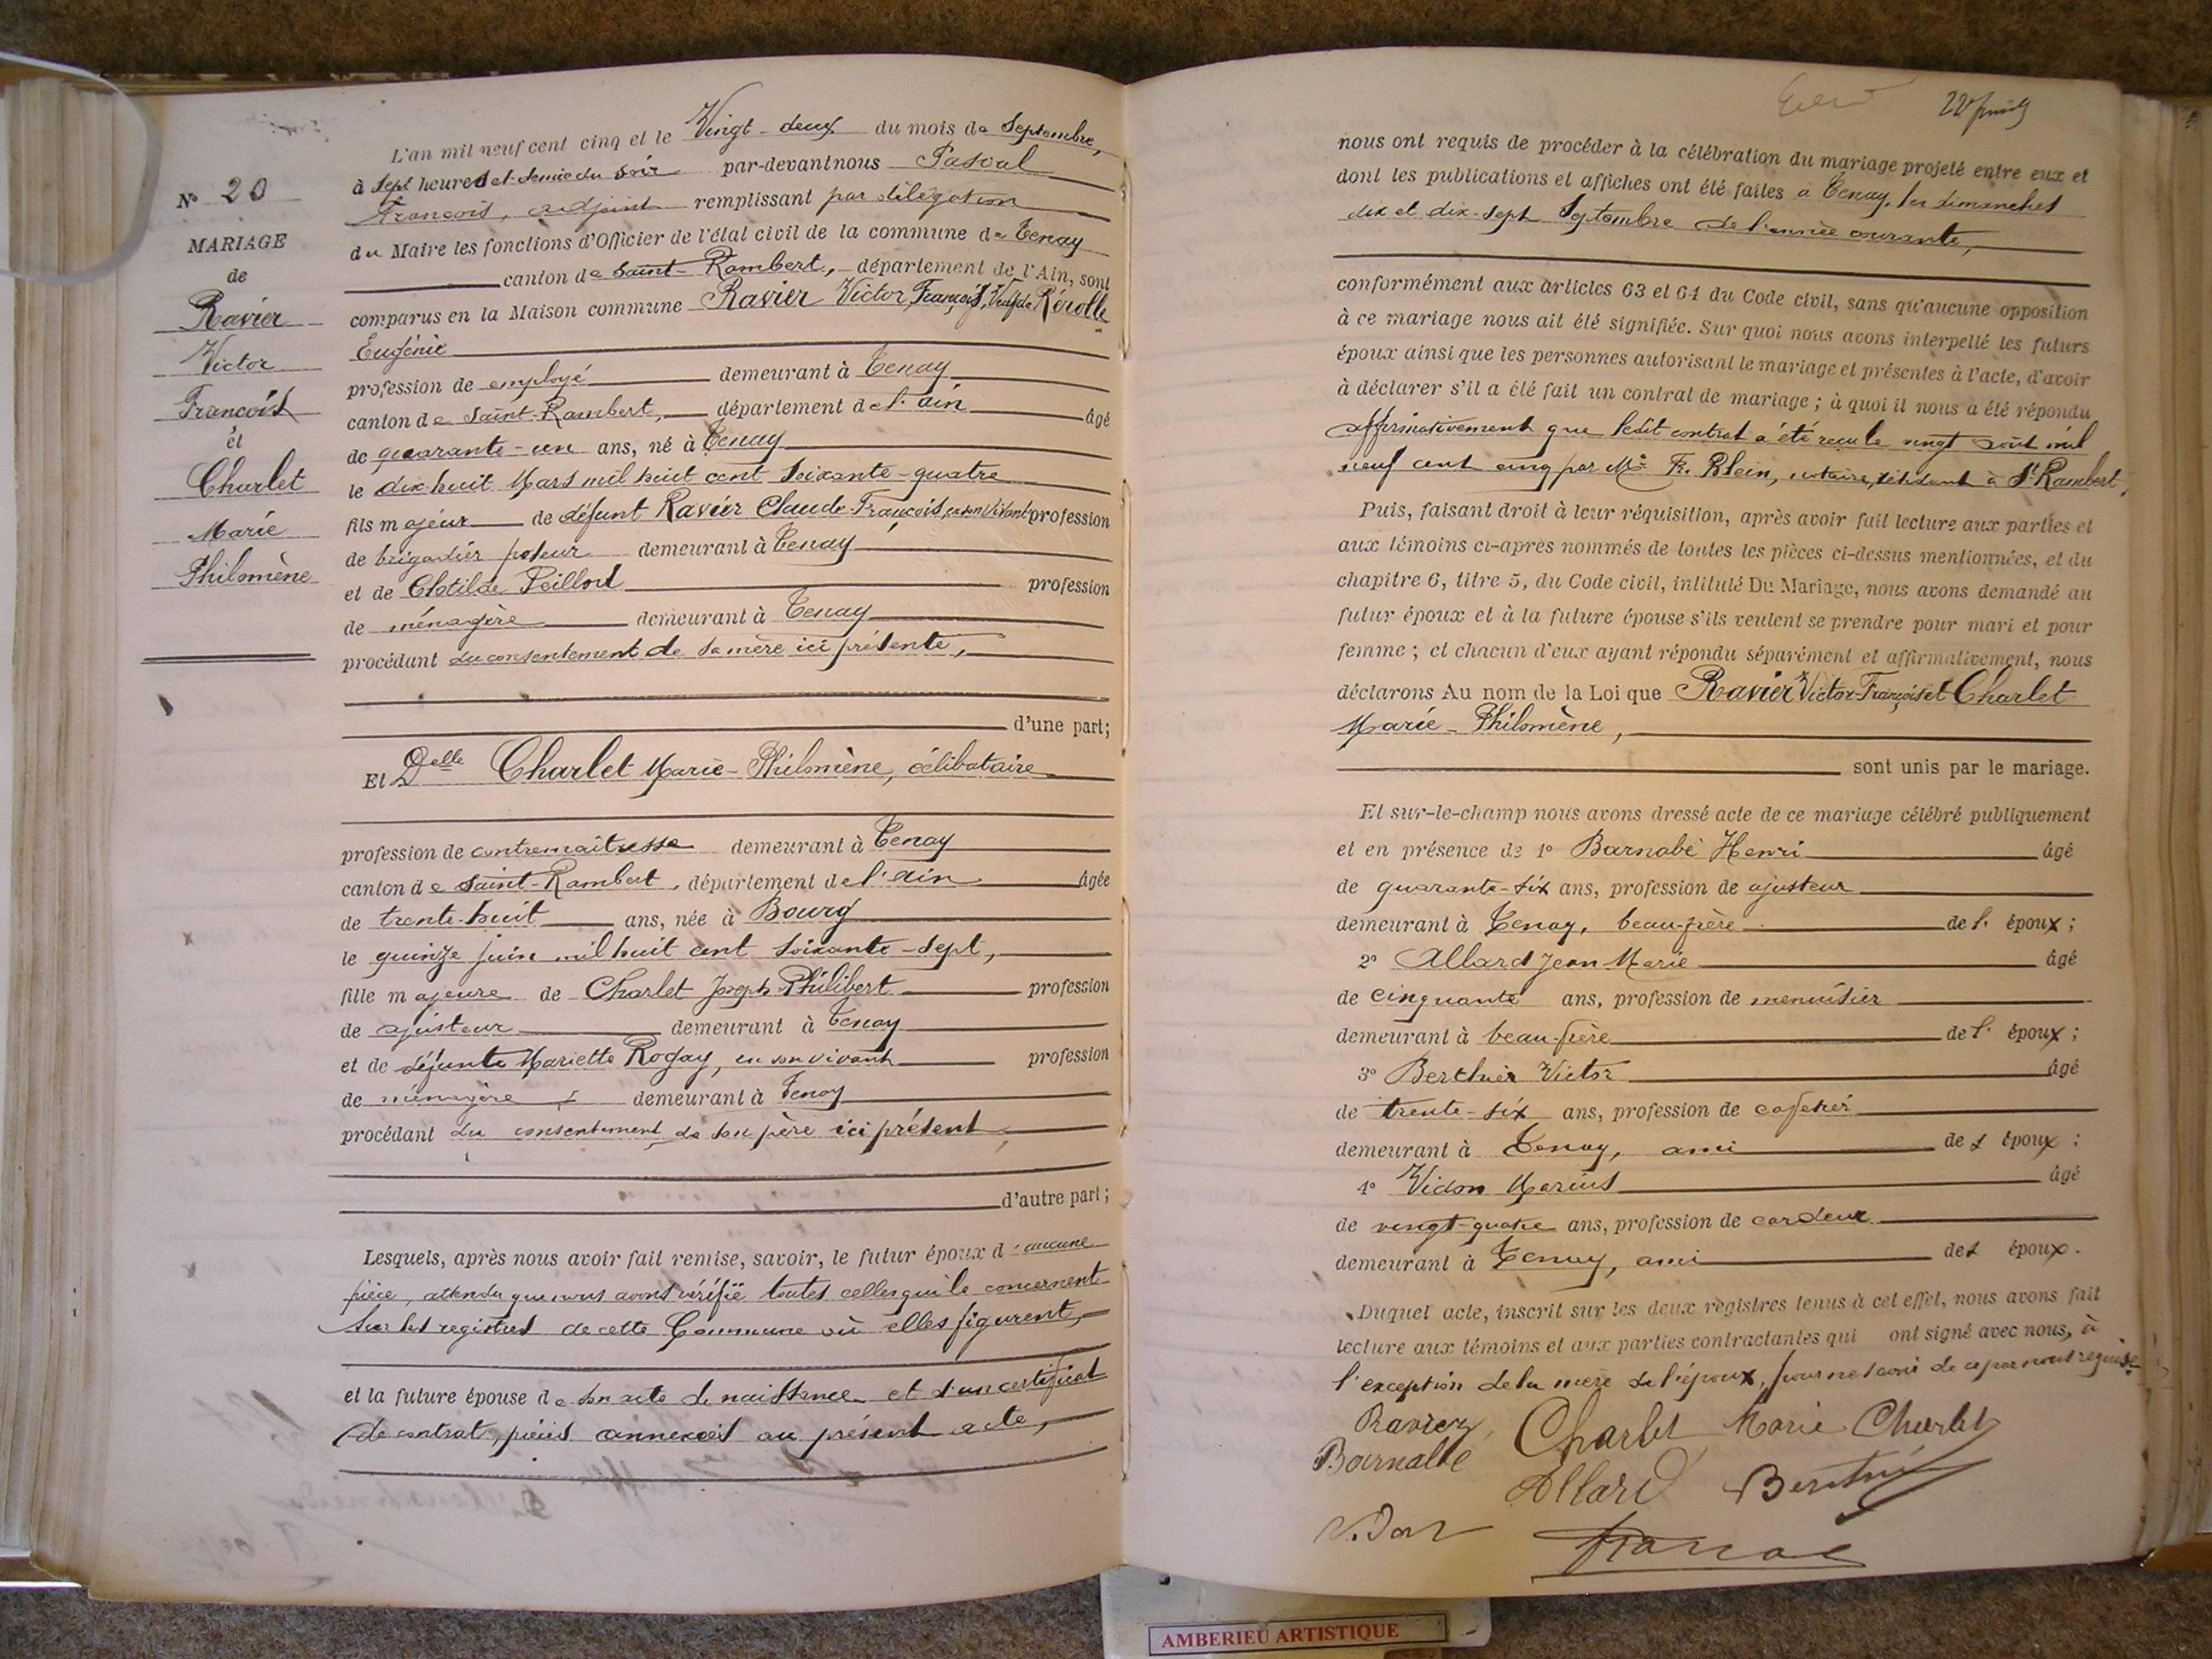 N° 20
MARIAGE
de
Ravier
Victor
François
et
Charlet
Marie
Philomène
L'an mil neuf cent cinq et le Vingt-deux du mois de Septembre,
à Sept heures et demie du Soir par-devant nous Pascal
François, adjoint remplissant par délégation
du Maire les fonctions d'Officier de l'état civil de la commune de Tenay
canton de Saint-Rambert, département de l'Ain, sont
comparus en la Maison commune Ravier Victor, François, Veuf de Rérolle
Eugénie
profession de employé demeurant à Tenay
canton de Saint-Rambert, département de l'ain âgé
de quarante-un ans, né à Tenay
le dix huit Mars mil huit cent Soixante-quatre
fils majeur de défunt Ravier Claude-François, en son vivant profession
de brigadier poseur demeurant à Tenay
et de Clotilde Peillod profession
de ménagère demeurant à Tenay
procédant du consentement de sa mère ici présente,
d'une part;
Et Delle Charlet Marie-Philomène, célibataire
profession de contremaîtresse demeurant à Tenay
canton de Saint-Rambert, département de l'ain âgée
de trente-huit ans, née à Bourg
le quinze juin mil huit cent soixante-sept,
fille majeure de Charlet Joseph Philibert profession
de ajusteur demeurant à Tenay
et de défunte Mariette Rogay, en son vivant profession
de ménagère demeurant à Tenay
procédant du consentement de son père ici présent
d'autre part;
Lesquels, après nous avoir fait remise, savoir, le futur époux d'aucune
pièce, attendu que nous avons vérifié toutes celles qui le concernent
sur les registres de cette Commune où elles figurent,
et la future épouse de son acte de naissance et d'un certificat
de contrat, pièces annexées au présent acte,
nous ont requis de procéder à la célébration du mariage projeté entre eux et
dont les publications et affiches ont été faites à Tenay, les dimanches
dix et dix-sept Septembre de l'année courante,
conformément aux articles 63 et 64 du Code civil, sans qu'aucune opposition
à ce mariage nous ait été signifiée. Sur quoi nous avons interpellé les futurs
époux ainsi que les personnes autorisant le mariage et présentes à l'acte, d'avoir
à déclarer s'il a été fait un contrat de mariage; à quoi il nous a été répondu
affirmativement que ledit contrat a été reçu le vingt août mil
neuf cent cinq par Me Fr. Blein, notaire, résidant à St Rambert,
Puis, faisant droit à leur réquisition, après avoir fait lecture aux parties et
aux témoins ci-après nommés de toutes les pièces ci-dessus mentionnées, et du
chapitre 6, titre 5, du Code civil, intitulé Du Mariage, nous avons demandé au
futur époux et à la future épouse s'ils veulent se prendre pour mari et pour
femme; et chacun d'eux ayant répondu séparément et affirmativement, nous
déclarons Au nom de la Loi que Ravier Victor-François et Charlet
Marie-Philomène,
sont unis par le mariage.
Et sur-le-champ nous avons dressé acte de ce mariage célébré publiquement
et en présence de 1° Barnabé Henri âgé
de quarante-six ans, profession de ajusteur
demeurant à Tenay, beau-frère de l' époux;
2° Allard Jean Marie âgé
de cinquante ans, profession de menuisier
demeurant à beau-frère de l' époux;
3° Berthier Victor âgé
de trente-six ans, profession de cafetier
demeurant à Tenay, ami des époux;
4° Vidon Marius âgé
de vingt-quatre ans, profession de cardeur
demeurant à Tenay, ami des époux.
Duquel acte, inscrit sur les deux registres tenus à cet effet, nous avons fait
lecture aux témoins et aux parties contractantes qui ont signé avec nous, à
l'exception de la mère de l'époux, pour ne savoir de ce par nous requise
Ravier Charlet Marie Charlet
Barnabé Allard Berthier
Vidon Pascal
AMBERIEU ARTISTIQUE